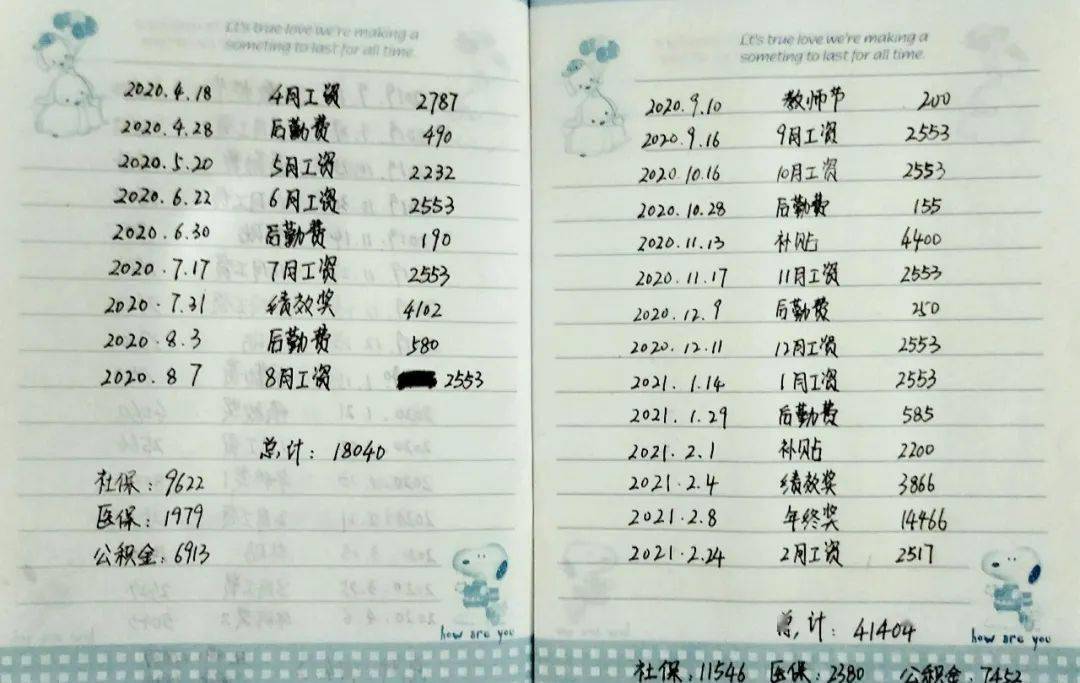 It's true love we're making a
someting to last for all time.
2020.4.18 4月工资 2787
2020.4.28 后勤费 490
2020.5.20 5月工资 2232
2020.6.22 6月工资 2553
2020.6.30 后勤费 190
2020.7.17 7月工资 2553
2020.7.31 绩效奖 4102
2020.8.3 后勤费 580
2020.8 7 8月工资 2553
总计: 18040
社保: 9622
医保: 1979
公积金: 6913
how are you
It's true love we're making a
someting to last for all time.
2020.9.10 教师节 200
2020.9.16 9月工资 2553
2020.10.16 10月工资 2553
2020.10.28 后勤费 155
2020.11.13 补贴 4400
2020.11.17 11月工资 2553
2020.12.9 后勤费 250
2020.12.11 12月工资 2553
2021.1.14 1月工资 2553
2021.1.29 后勤费 585
2021.2.1 补贴 2200
2021.2.4 绩效奖 3866
2021.2.8 年终奖 14466
2021.2.24 2月工资 2517
总计: 41404
how are you
社保: 11546 医保: 2380 公积金: 7452